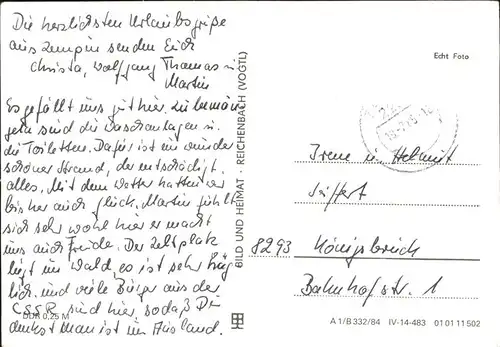 Die herzlichsten Urlaubsgrüße
aus Zempin senden Euch
Christa, Wolfgang Thomas u.
Martin
Es gefällt uns gut hier. Zu bemän-
geln sind die Waschanlagen u.
die Toiletten. Dafür ist ein wunder
schöner Strand, der entschädigt
alles. Mit dem Wetter hatten wir
bisher auch Glück. Martin fühlt
sich sehr wohl hier er macht
uns auch Freude. Der Zeltplatz
liegt im Wald, es ist sehr hüg-
lich, und viele Bürger aus der
CSSR sind hier, so daß Du
denkst man ist im Ausland.
DDR 0,25 M
BILD UND HEIMAT · REICHENBACH (VOGTL)
Echt Foto
Irene u. Helmut
Seiffert
8293 Königsbrück
Bahnhofstr. 1
A 1/B 332/84 IV-14-483 01 01 11 502